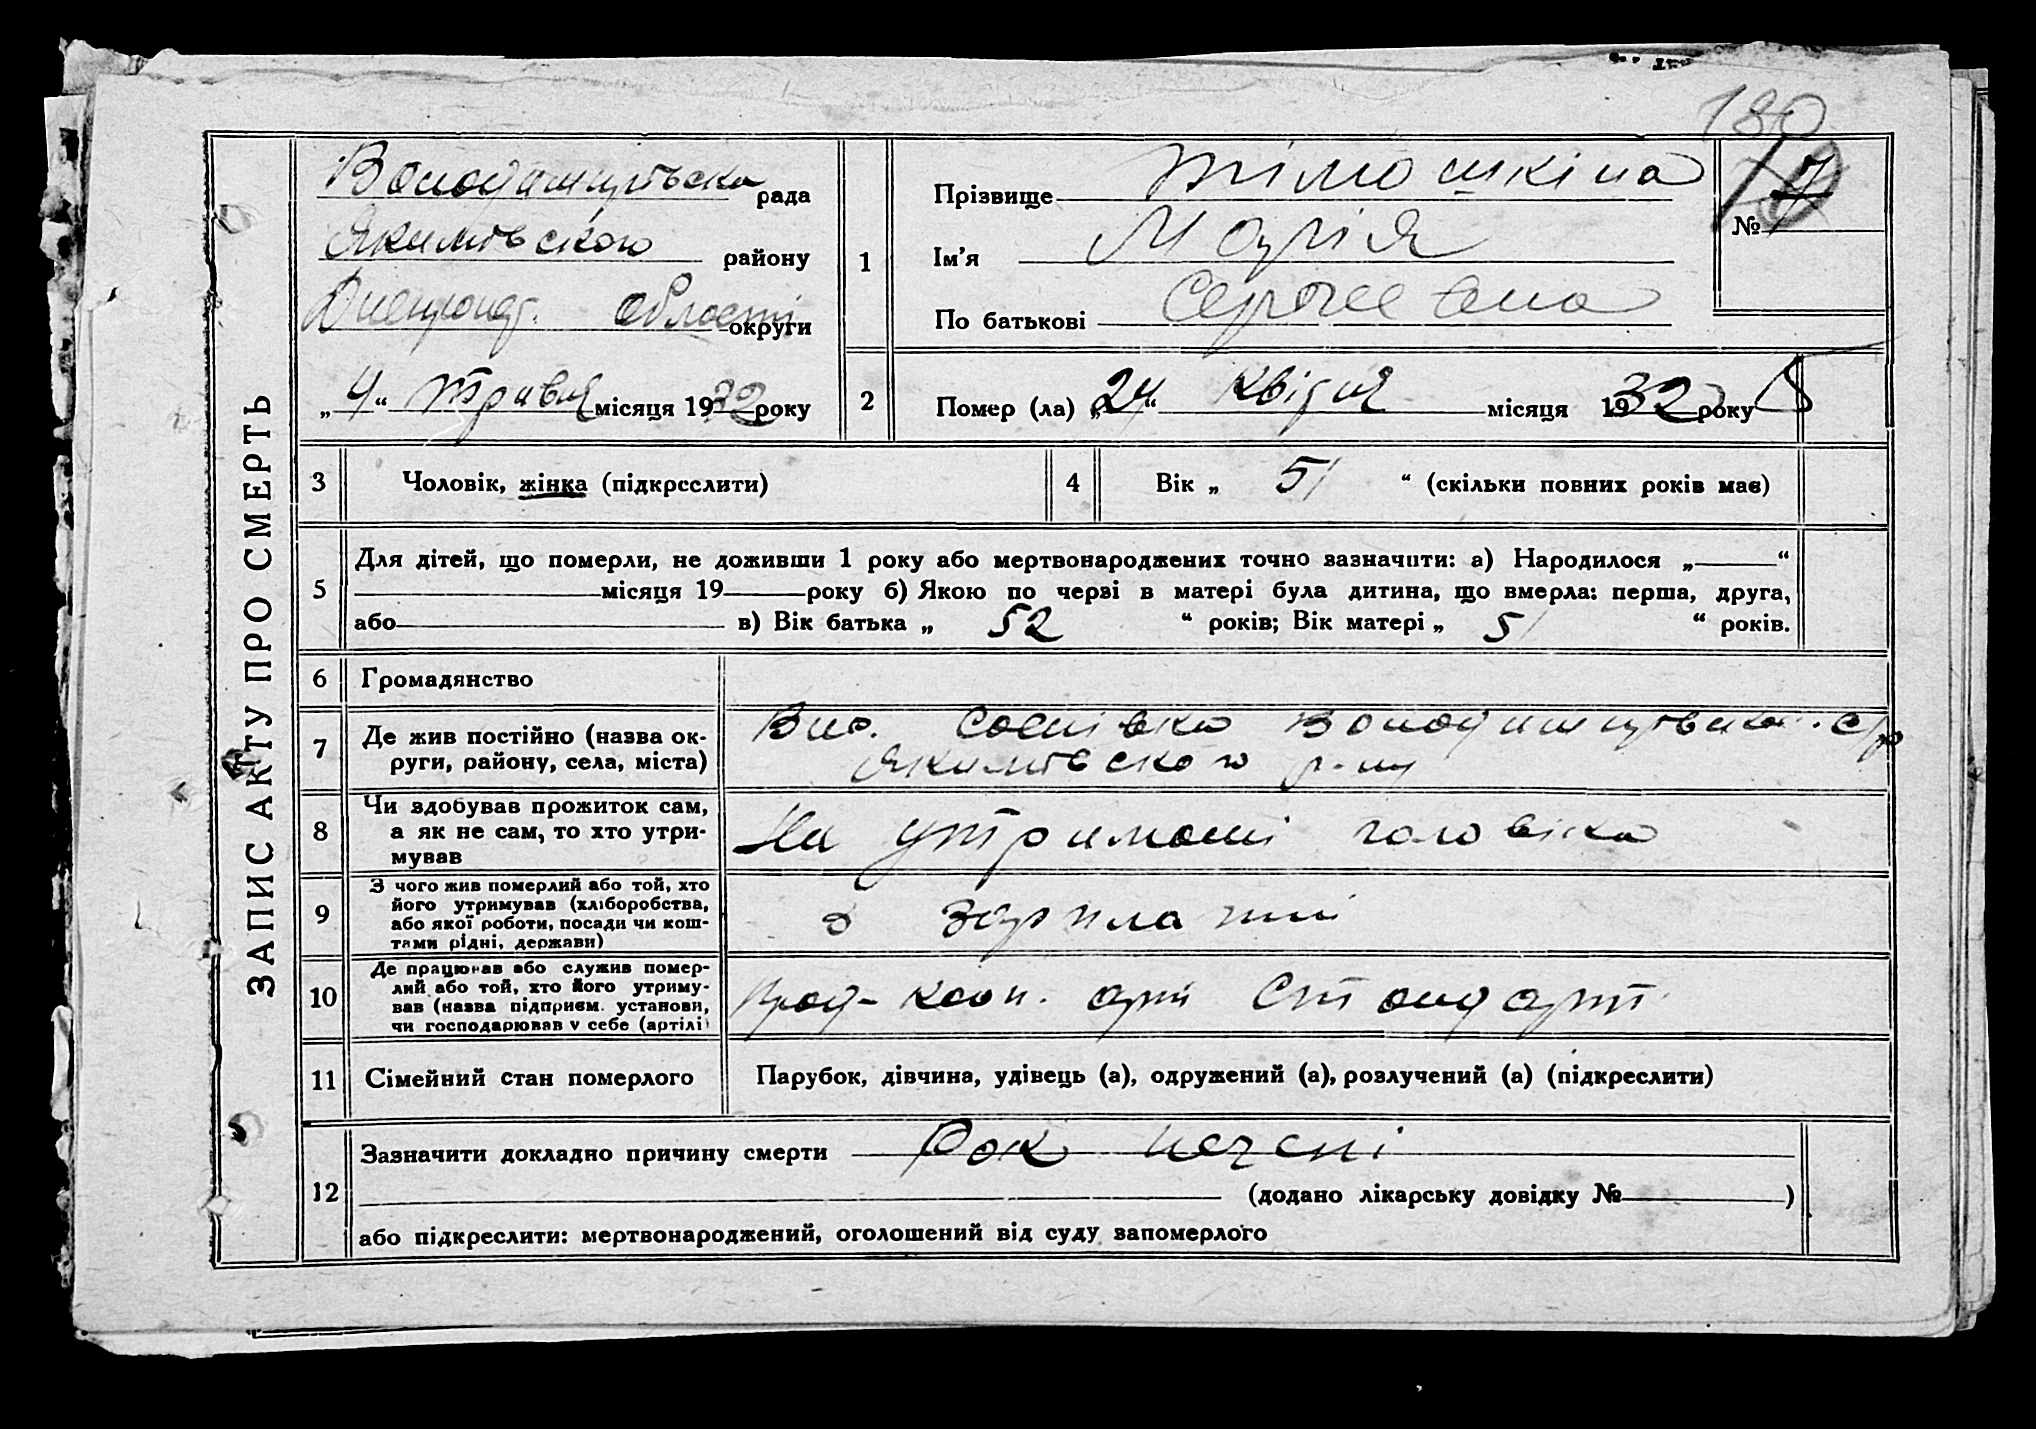 180
ЗАПИС АКТУ ПРО СМЕРТЬ
рада
Якимівського району
Днепропд. Області округи
„4“ травня місяця 1932 року
1
Прізвище Тімошкіна
Ім'я Марія
По батькові Сергієвна
№ 7
2
Помер (ла) „24“ Квітня місяця 1932 року
3
Чоловік, жінка (підкреслити)
4
Вік „ 51 “ (скільки повних років має)
5
Для дітей, що померли, не доживши 1 року або мертвонароджених точно зазначити: а) Народилося „ “
місяця 19 року б) Якою по черзі в матері була дитина, що вмерла: перша, друга,
або в) Вік батька „ 52 “ років; Вік матері „ 51 “ років.
6
Громадянство
7
Де жив постійно (назва ок-
руги, району, села, міста)
с/р
Якимівського р-ну
8
Чи здобував прожиток сам,
а як не сам, то хто утри-
мував
На утриманні чоловіка
9
З чого жив померлий або той, хто
його утримував (хліборобства,
або якої роботи, посади чи кош-
тами рідні, держави)
з зарплатні
10
Де працював або служив помер-
лий або той, хто його утриму-
вав (назва підприєм. установи,
чи господарював у себе (артілі)
кооп. арт Стандарт
11
Сімейний стан померлого
Парубок, дівчина, удівець (а), одружений (а), розлучений (а) (підкреслити)
12
Зазначити докладно причину смерти Рак печені
(додано лікарську довідку № )
або підкреслити: мертвонароджений, оголошений від суду запомерлого